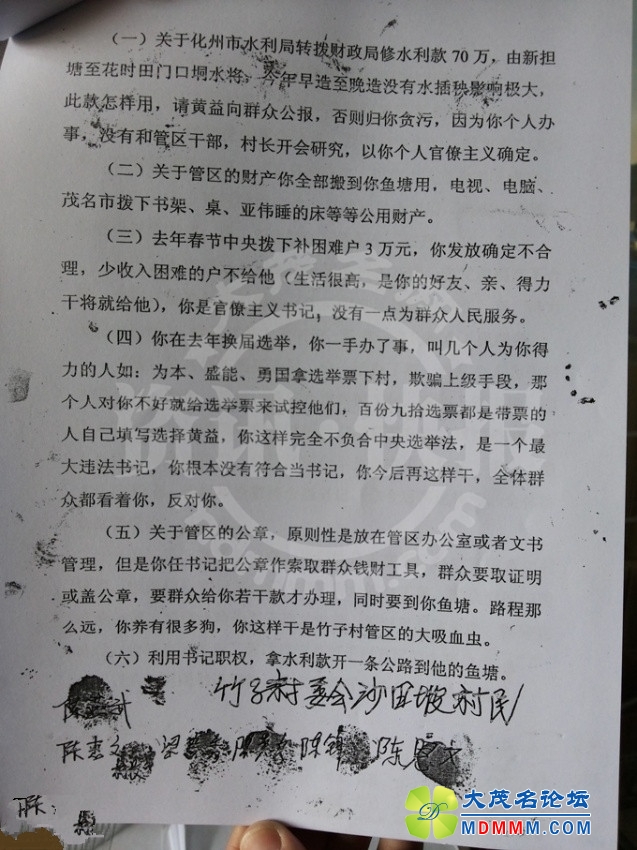 （一）关于化州市水利局转拨财政局修水利款 70 万，由新担
塘至花时田门口垌水将，今年早造至晚造没有水插秧影响极大，
此款怎样用，请黄益向群众公报，否则归你贪污，因为你个人办
事，没有和管区干部，村长开会研究，以你个人官僚主义确定。
（二）关于管区的财产你全部搬到你鱼塘用，电视、电脑、
茂名市拨下书架、桌、亚伟睡的床等等公用财产。
（三）去年春节中央拨下补困难户 3 万元，你发放确定不合
理，少收入困难的户不给他（生活很高，是你的好友、亲、得力
干将就给他），你是官僚主义书记，没有一点为群众人民服务。
（四）你在去年换届选举，你一手办了事，叫几个人为你得
力的人如：为本、盛能、勇国拿选举票下村，欺骗上级手段，那
个人对你不好就给选举票来试控他们，百份九拾选票都是带票的
人自己填写选择黄益，你这样完全不负合中央选举法，是一个最
大违法书记，你根本没有符合当书记，你今后再这样干，全体群
众都看着你，反对你。
（五）关于管区的公章，原则性是放在管区办公室或者文书
管理，但是你任书记把公章作索取群众钱财工具，群众要取证明
或盖公章，要群众给你若干款才办理，同时要到你鱼塘。路程那
么远，你养有很多狗，你这样干是竹子村管区的大吸血虫。
（六）利用书记职权，拿水利款开一条公路到他的鱼塘。
竹子村委会沙田坡村民
陈
大茂名论坛
MDMMM.COM